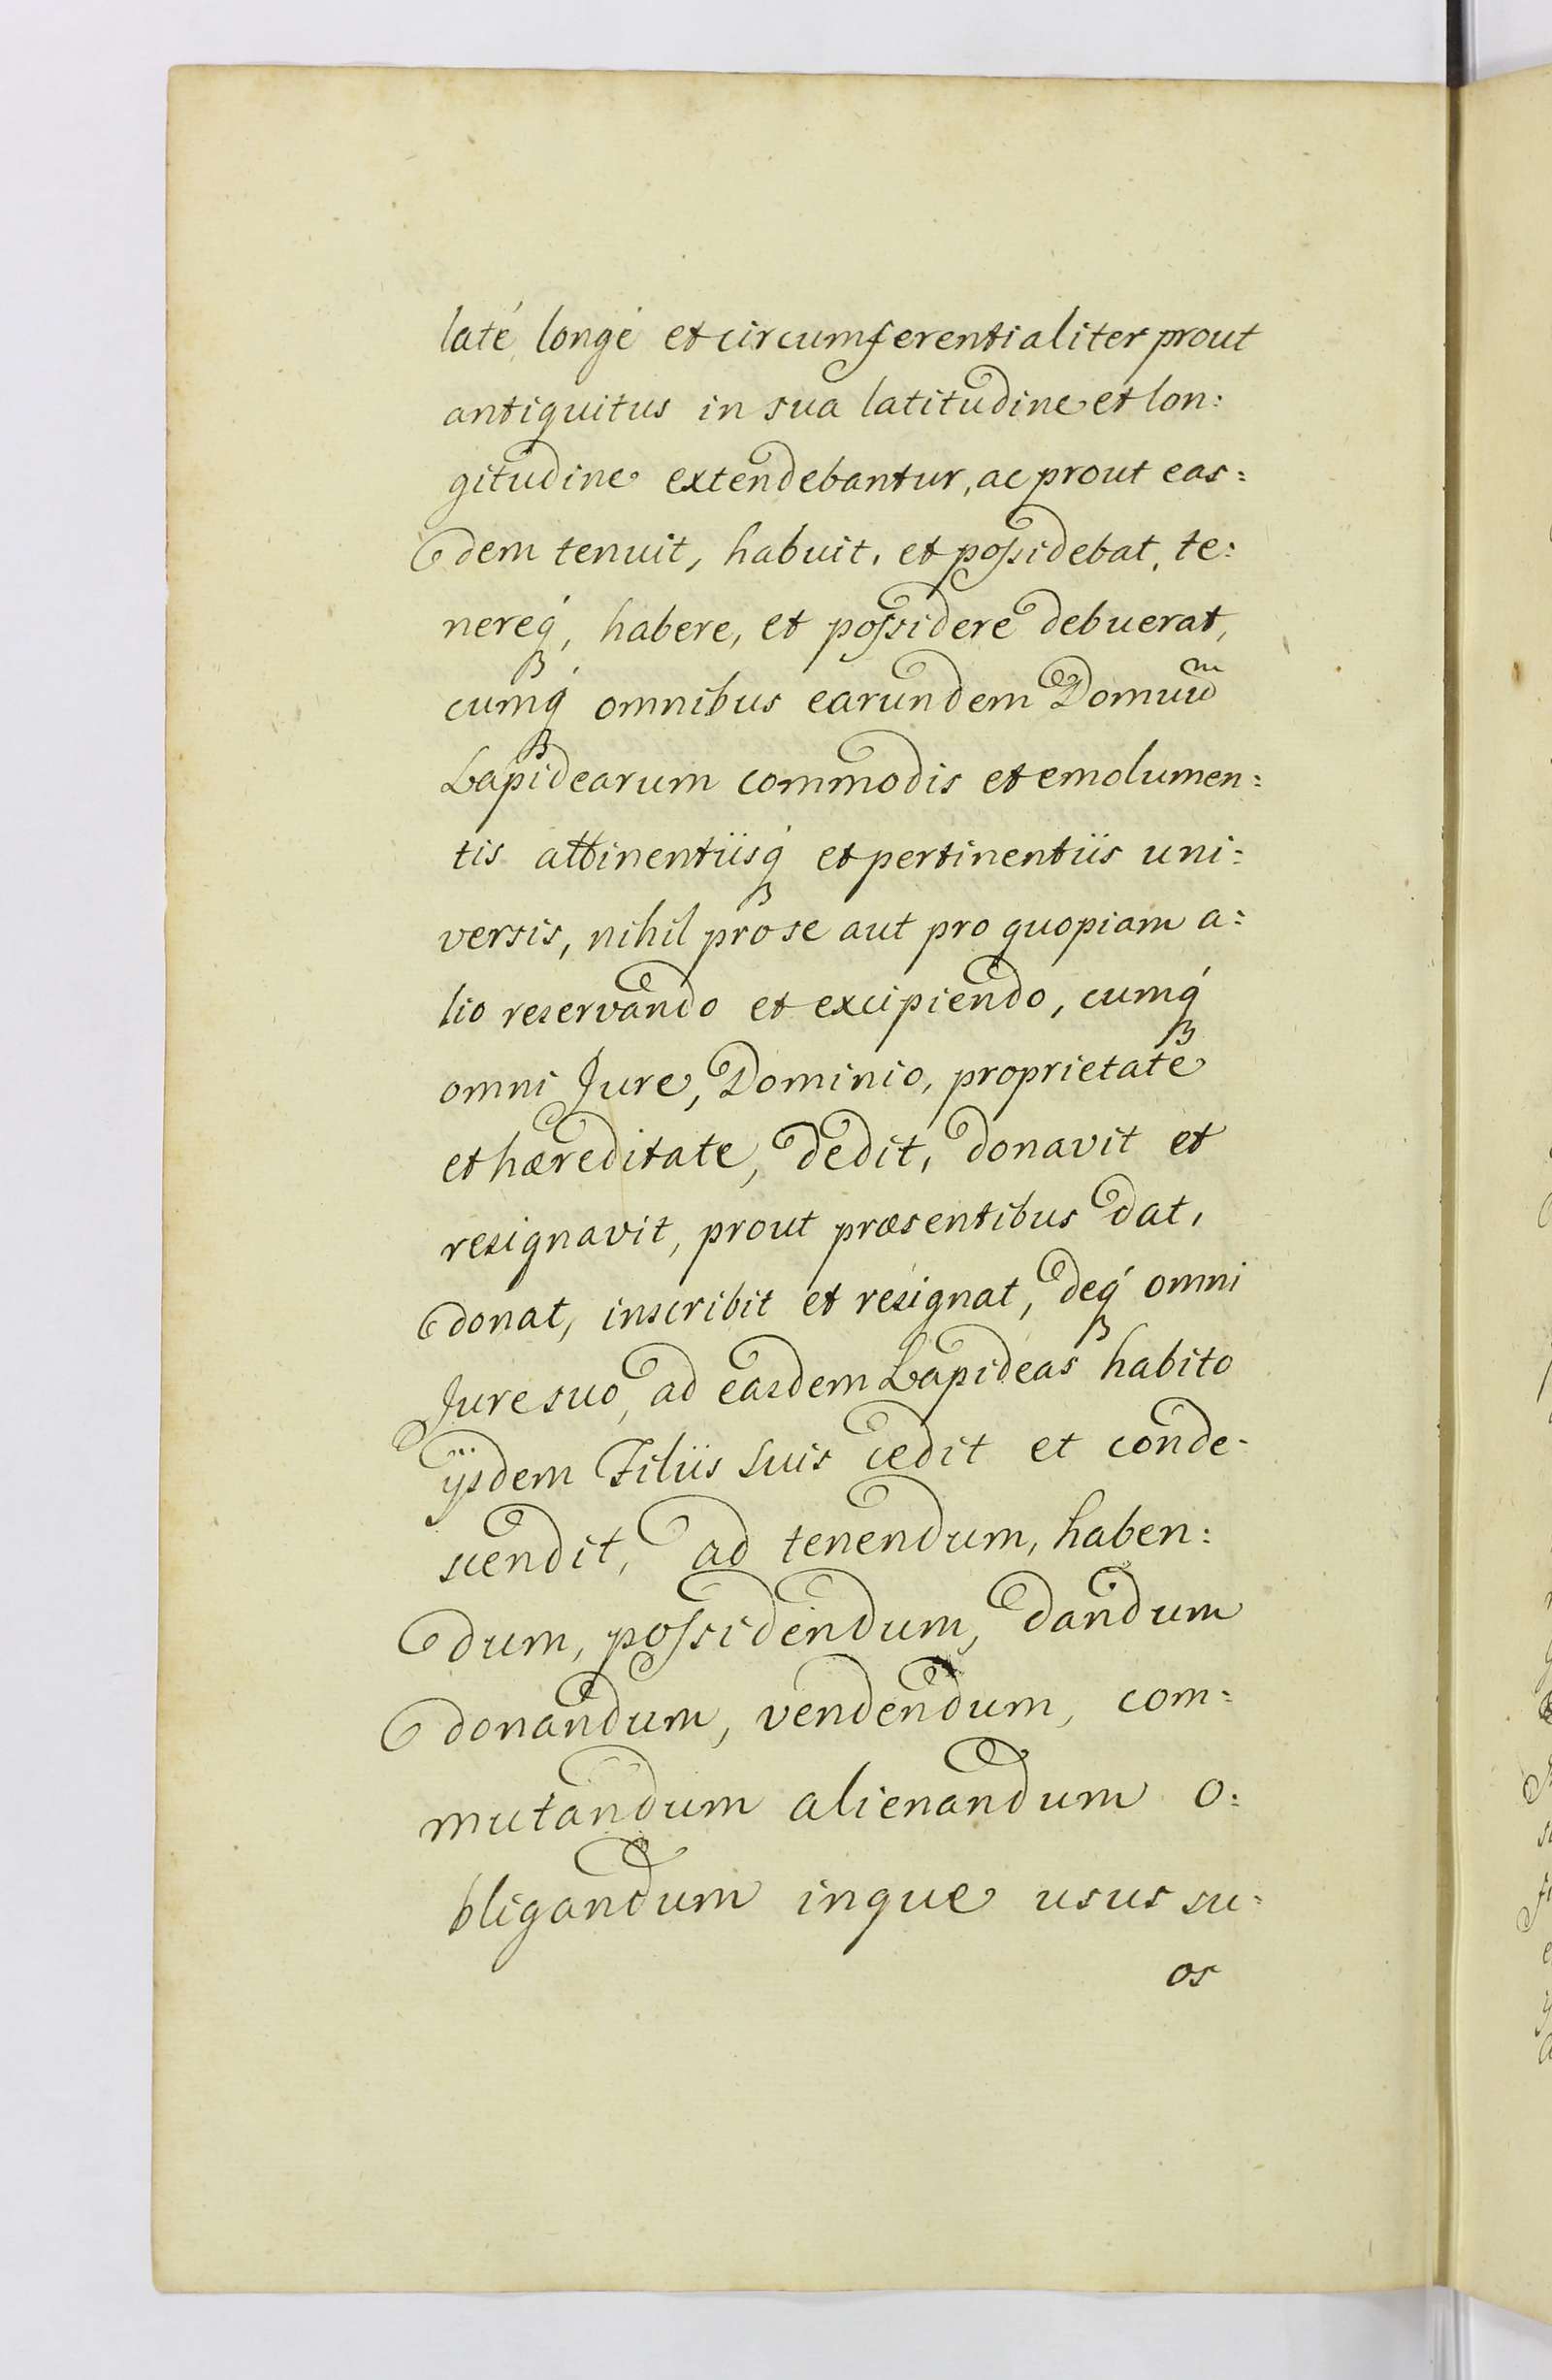 laté longé et circumferentialiter prout
antiquitus in sua latitudine et lon:
gitudine extendebantur, ac prout eas:
dem tenuit, habuit, et possidebat, te:
nereq́, habere, et possidere debuerat,
cumq́ omnibus earundem Domuum
Lapidearum commodis et emolumen:
tis attinentiisq́ et pertinentiis uni:
versis, nihil pro se aut pro quopiam a:
lio reservando et excipiendo, cumq́
omni Jure, Dominio, proprietate
et hæreditate, dedit, donavit et
resignavit, prout præsentibus dat,
donat, inscribit et resignat, deq́ omni
Jure suo, ad easdem Lapideas habito
ijsdem Filiis suis cedit et conde-
scendit, ad tenendum, haben:
dum, possidendum, dandum
donandum, vendendum, com:
mutandum alienandum o:
bligandum inque usus su:
os